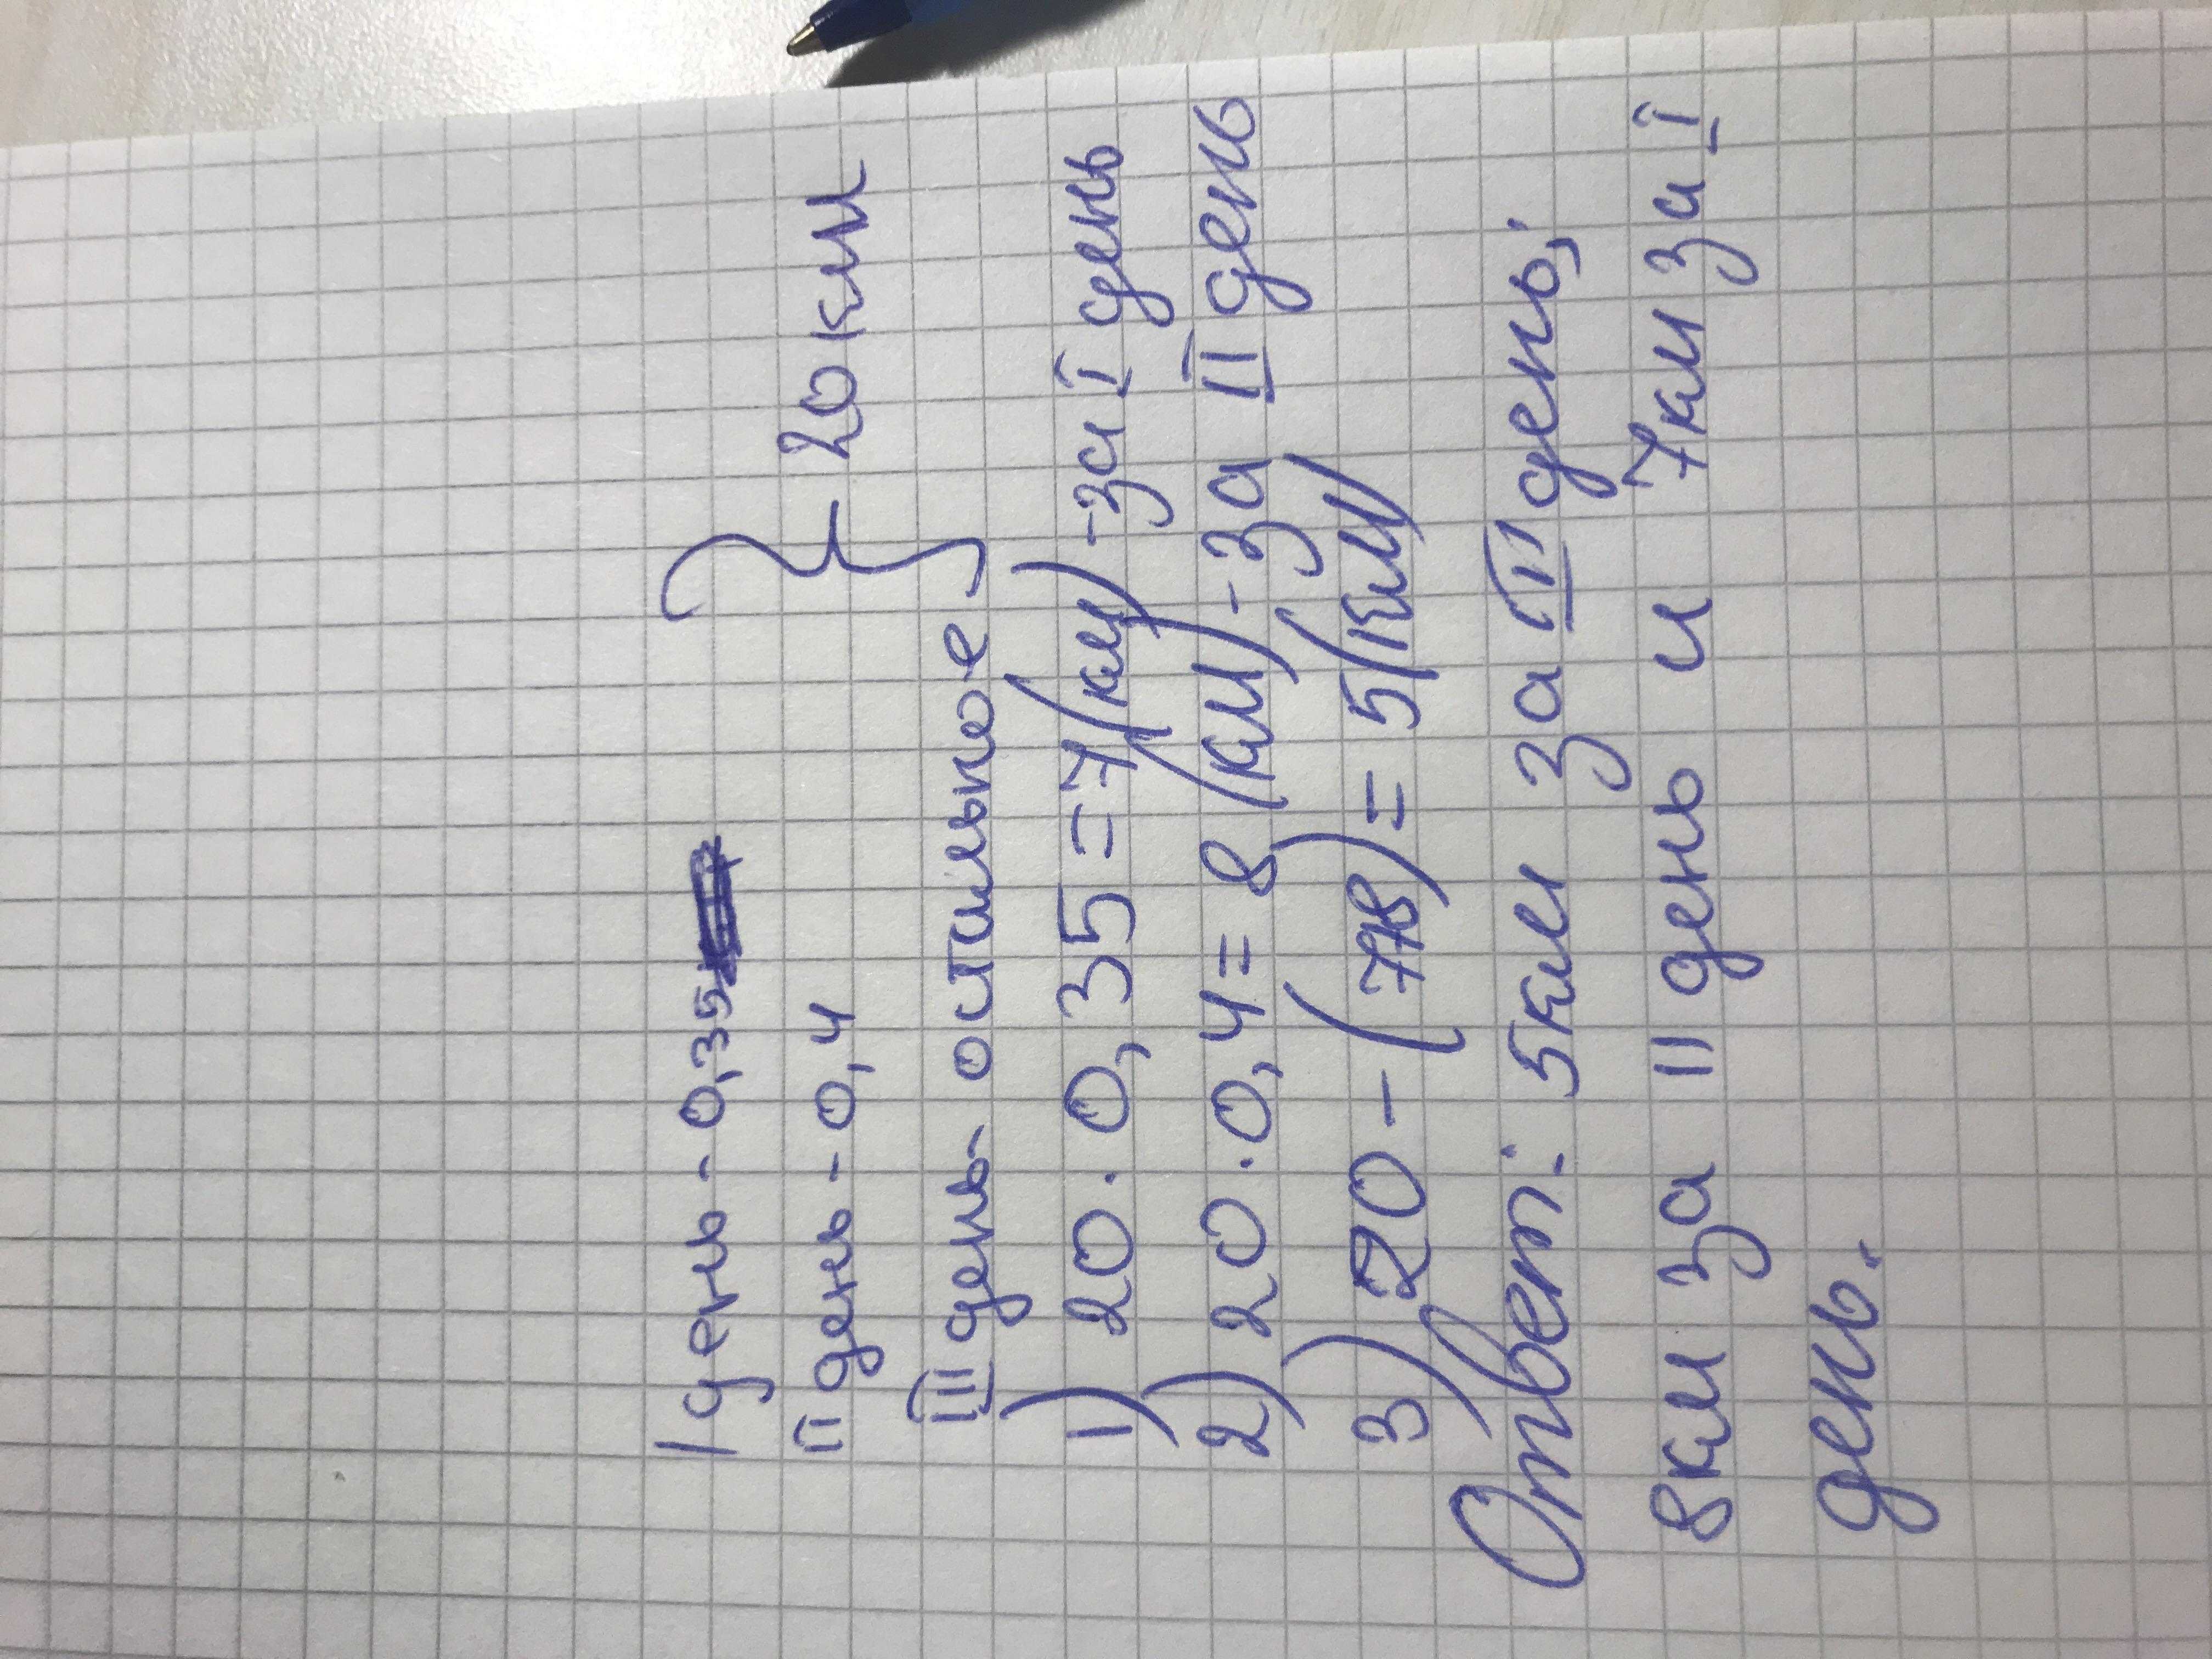 I день - 0,35
II день - 0,4
III день - остальное } 20 км
1) 20 · 0,35 = 7 (км) - за I день
2) 20 · 0,4 = 8 (км) - за II день
3) 20 - (7+8) = 5 (км)
Ответ: 5 км за III день;
8 км за II день и 7 км за I
день.